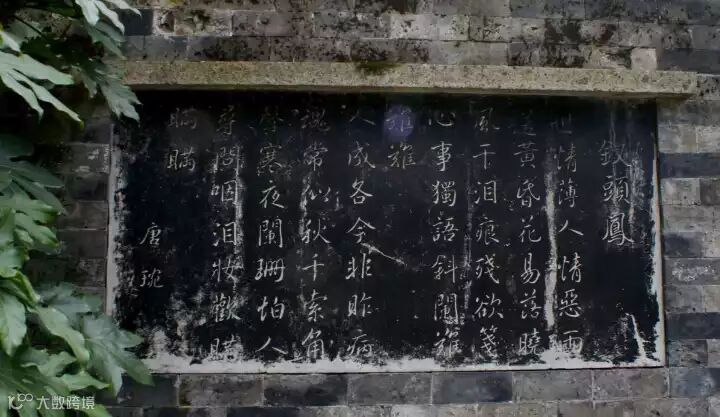 釵頭鳳
世情薄人情惡雨
送黃昏花易落曉
風干泪痕殘欲箋
心事獨語斜闌難
難難
人成各今非昨病
魂常似秋千索角
聲寒夜闌珊怕人
尋問咽泪妝歡瞞
瞞瞞
唐琬
大数跨境